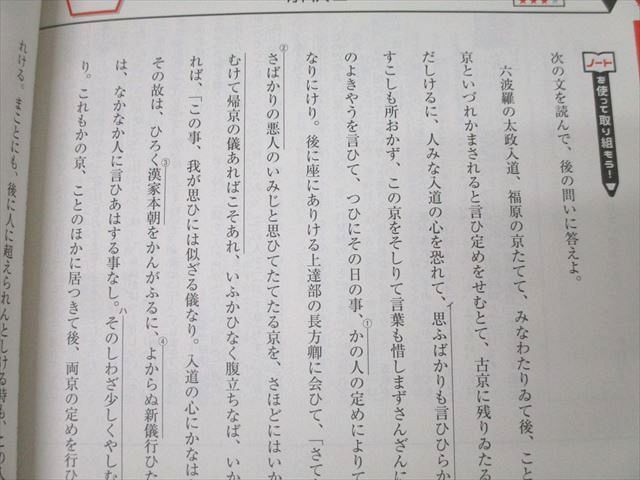 ノートを使って取り組もう！
次の文を読んで、後の問いに答えよ。
六波羅の太政入道、福原の京たてて、みなわたりゐて後、こと
京といづれかまされると言ひ定めをせむとて、古京に残りゐたる
だしけるに、人みな入道の心を恐れて、思ふばかりも言ひひらか
イ
すこしも所おかず、この京をそしりて言葉も惜しまずさんざんに
のよきやうを言ひて、つひにその日の事、かの人の定めによりて
①
なりにけり。後に座にありける上達部の長方卿に会ひて、「さて
さばかりの悪人のいみじと思ひてたてたる京を、さほどにはいか
②
むけて帰京の儀あればこそあれ、いふかひなく腹立ちなば、いか
れば、「この事、我が思ひには似ざる儀なり。入道の心にかなは
その故は、ひろく漢家本朝をかんがふるに、よからぬ新儀行ひた
③
④
は、なかなか人に言ひあはする事なし。そのしわざ少しくやしむ
ハ
り。これもかの京、ことのほかに居つきて後、両京の定めを行ひ
れける。まことにも、後に人に超えられんとしける時も、この人